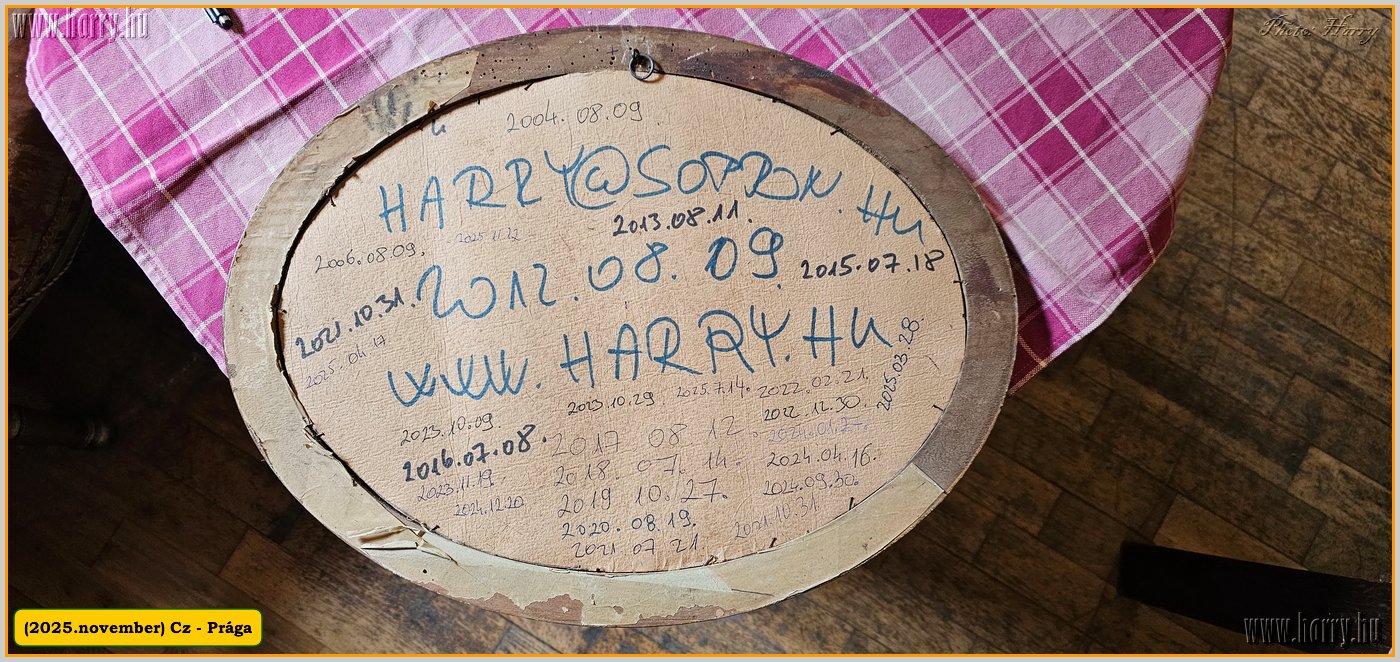 www.harry.hu
Photo: Harry
2004. 08.09.
HARRY@SOPRON.HU
2013.08.11.
2025.11.22
2006.08.09.
2012.08.09.
2015.07.18
2021.10.31.
2025.04.17
WWW.HARRY.HU
2025.03.28.
2023.10.29.
2025.7.14.
2022.02.21.
2023.10.09.
2022.12.30.
2016.07.08.
2017 08 12
2023.11.19.
2018. 07. 14.
2024.04.16.
2024.12.20
2019 10. 27.
2024.09.30.
2020. 08 19.
2021.10.31.
2021 07 21
(2025.november) Cz - Prága
www.harry.hu